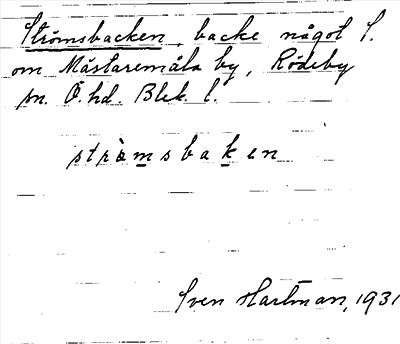 Strömsbacken, backe något S.
om Mästaremåla by, Rödeby
sn. Ö. hd. Blek. l.
strömsbaken
Sven Hartman, 1931